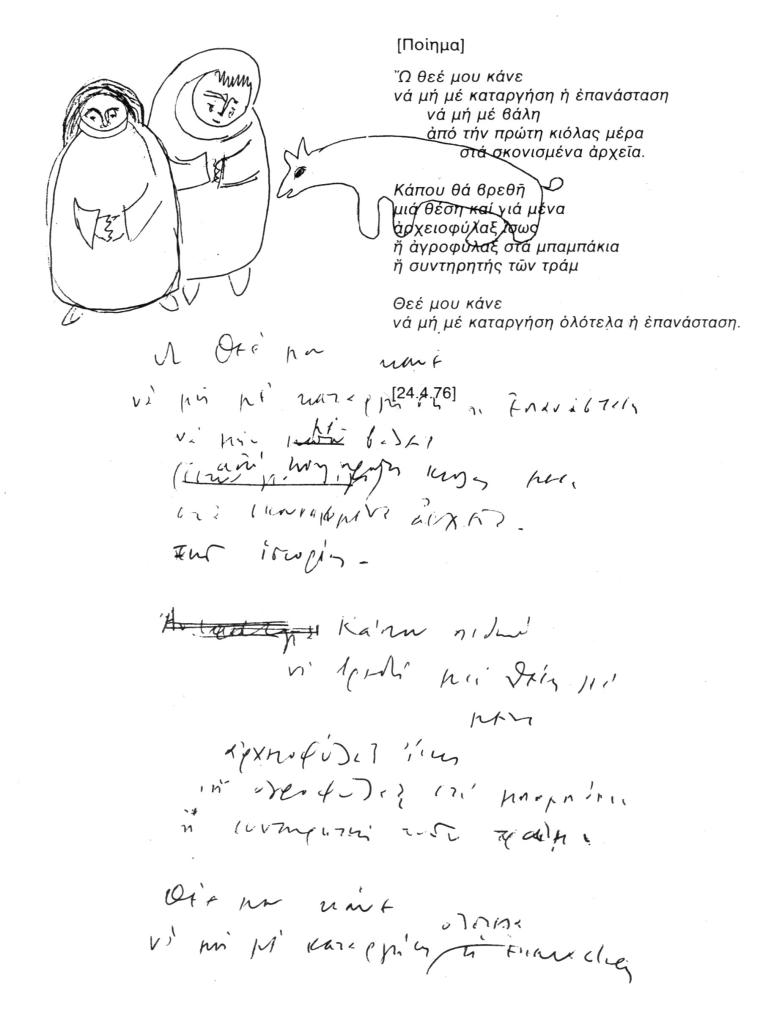 [Ποίημα]
Ὤ θεέ μου κάνε
νά μή μέ καταργήση ἡ ἐπανάσταση
νά μή μέ βάλη
ἀπό τήν πρώτη κιόλας μέρα
στά σκονισμένα ἀρχεῖα.
Κάπου θά βρεθῆ
μιά θέση καί γιά μένα
ἀρχειοφύλαξ ἴσως
ἤ ἀγροφύλαξ στά μπαμπάκια
ἤ συντηρητής τῶν τράμ
Θεέ μου κάνε
νά μή μέ καταργήση ὁλότελα ἡ ἐπανάσταση.
[24.4.76]
Ω Θεέ μου κάνε
νά μή μέ καταργήση ἡ ἐπανάσταση
νά μήν μέ βάλει
στά σκονισμένα ἀρχεῖα.
τῆς ἱστορίας.
Κάπου
νά βρεθῆ μιά θέση γιά
μένα
ἀρχειοφύλαξ ἴσως
ἤ ἀγροφύλαξ στά μπαμπάκια
ἤ συντηρητής τῶν τράμ
Θεέ μου κάνε
ολότελα
νά μή μέ καταργήση ἡ ἐπανάσταση